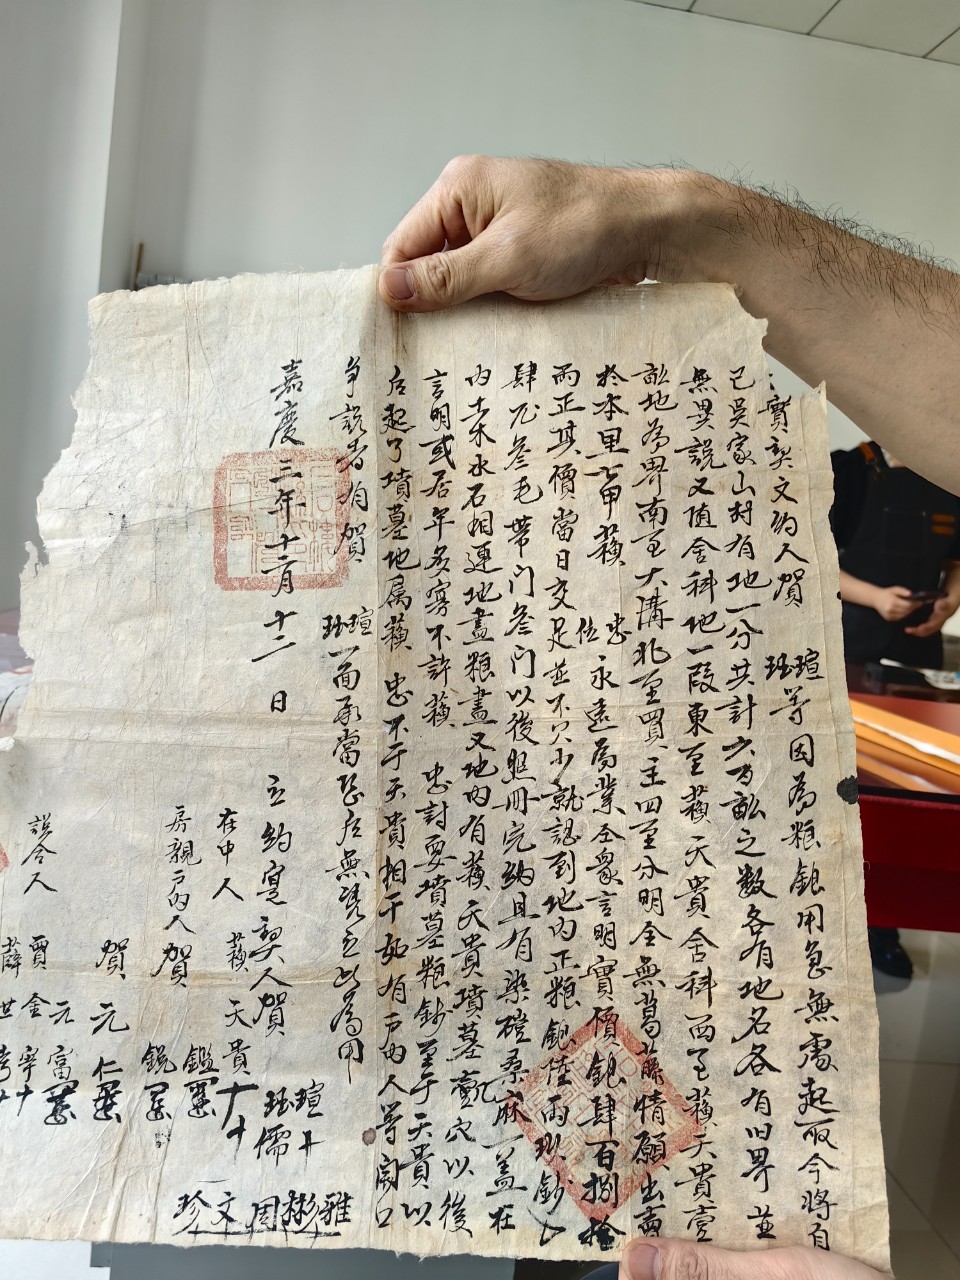 實契文約人賀瑄珏等因為粮銀用急無處起取今將自
己吳家山村有地一分共計六百畝之數各有地名各有旧界並
無異說又随舍科地一段東至蘇天貴舍科西至蘇天貴壹
畝地為界南至大溝北至買主四至分明全無葛藤情願出賣
於本里七甲蘇忠位永遠為業仝眾言明實價銀肆百捌拾
兩正其價當日交足並不欠少就認到地内正粮銀陸兩
肆 叁毛帶门叁门以後照冊完納且有染磴桑麻一盖在
内土木水石相連地盡粮盡又地内有蘇天貴墳墓 穴以後
言明或居年多寡不許蘇忠討要墳墓粮鈔至于天貴以
后起了墳墓地属蘇忠不于天貴相干如有户内人等闹口
争說者有賀瑄珏一面承當恐后無凭立此為用
嘉慶三年十二月十二日立約寔契人賀瑄珏儒十
在中人蘇天貴十
房親户内人賀鑑銳
賀元仁
說合人賈金元富寧十
薛世
雅彬周文珍